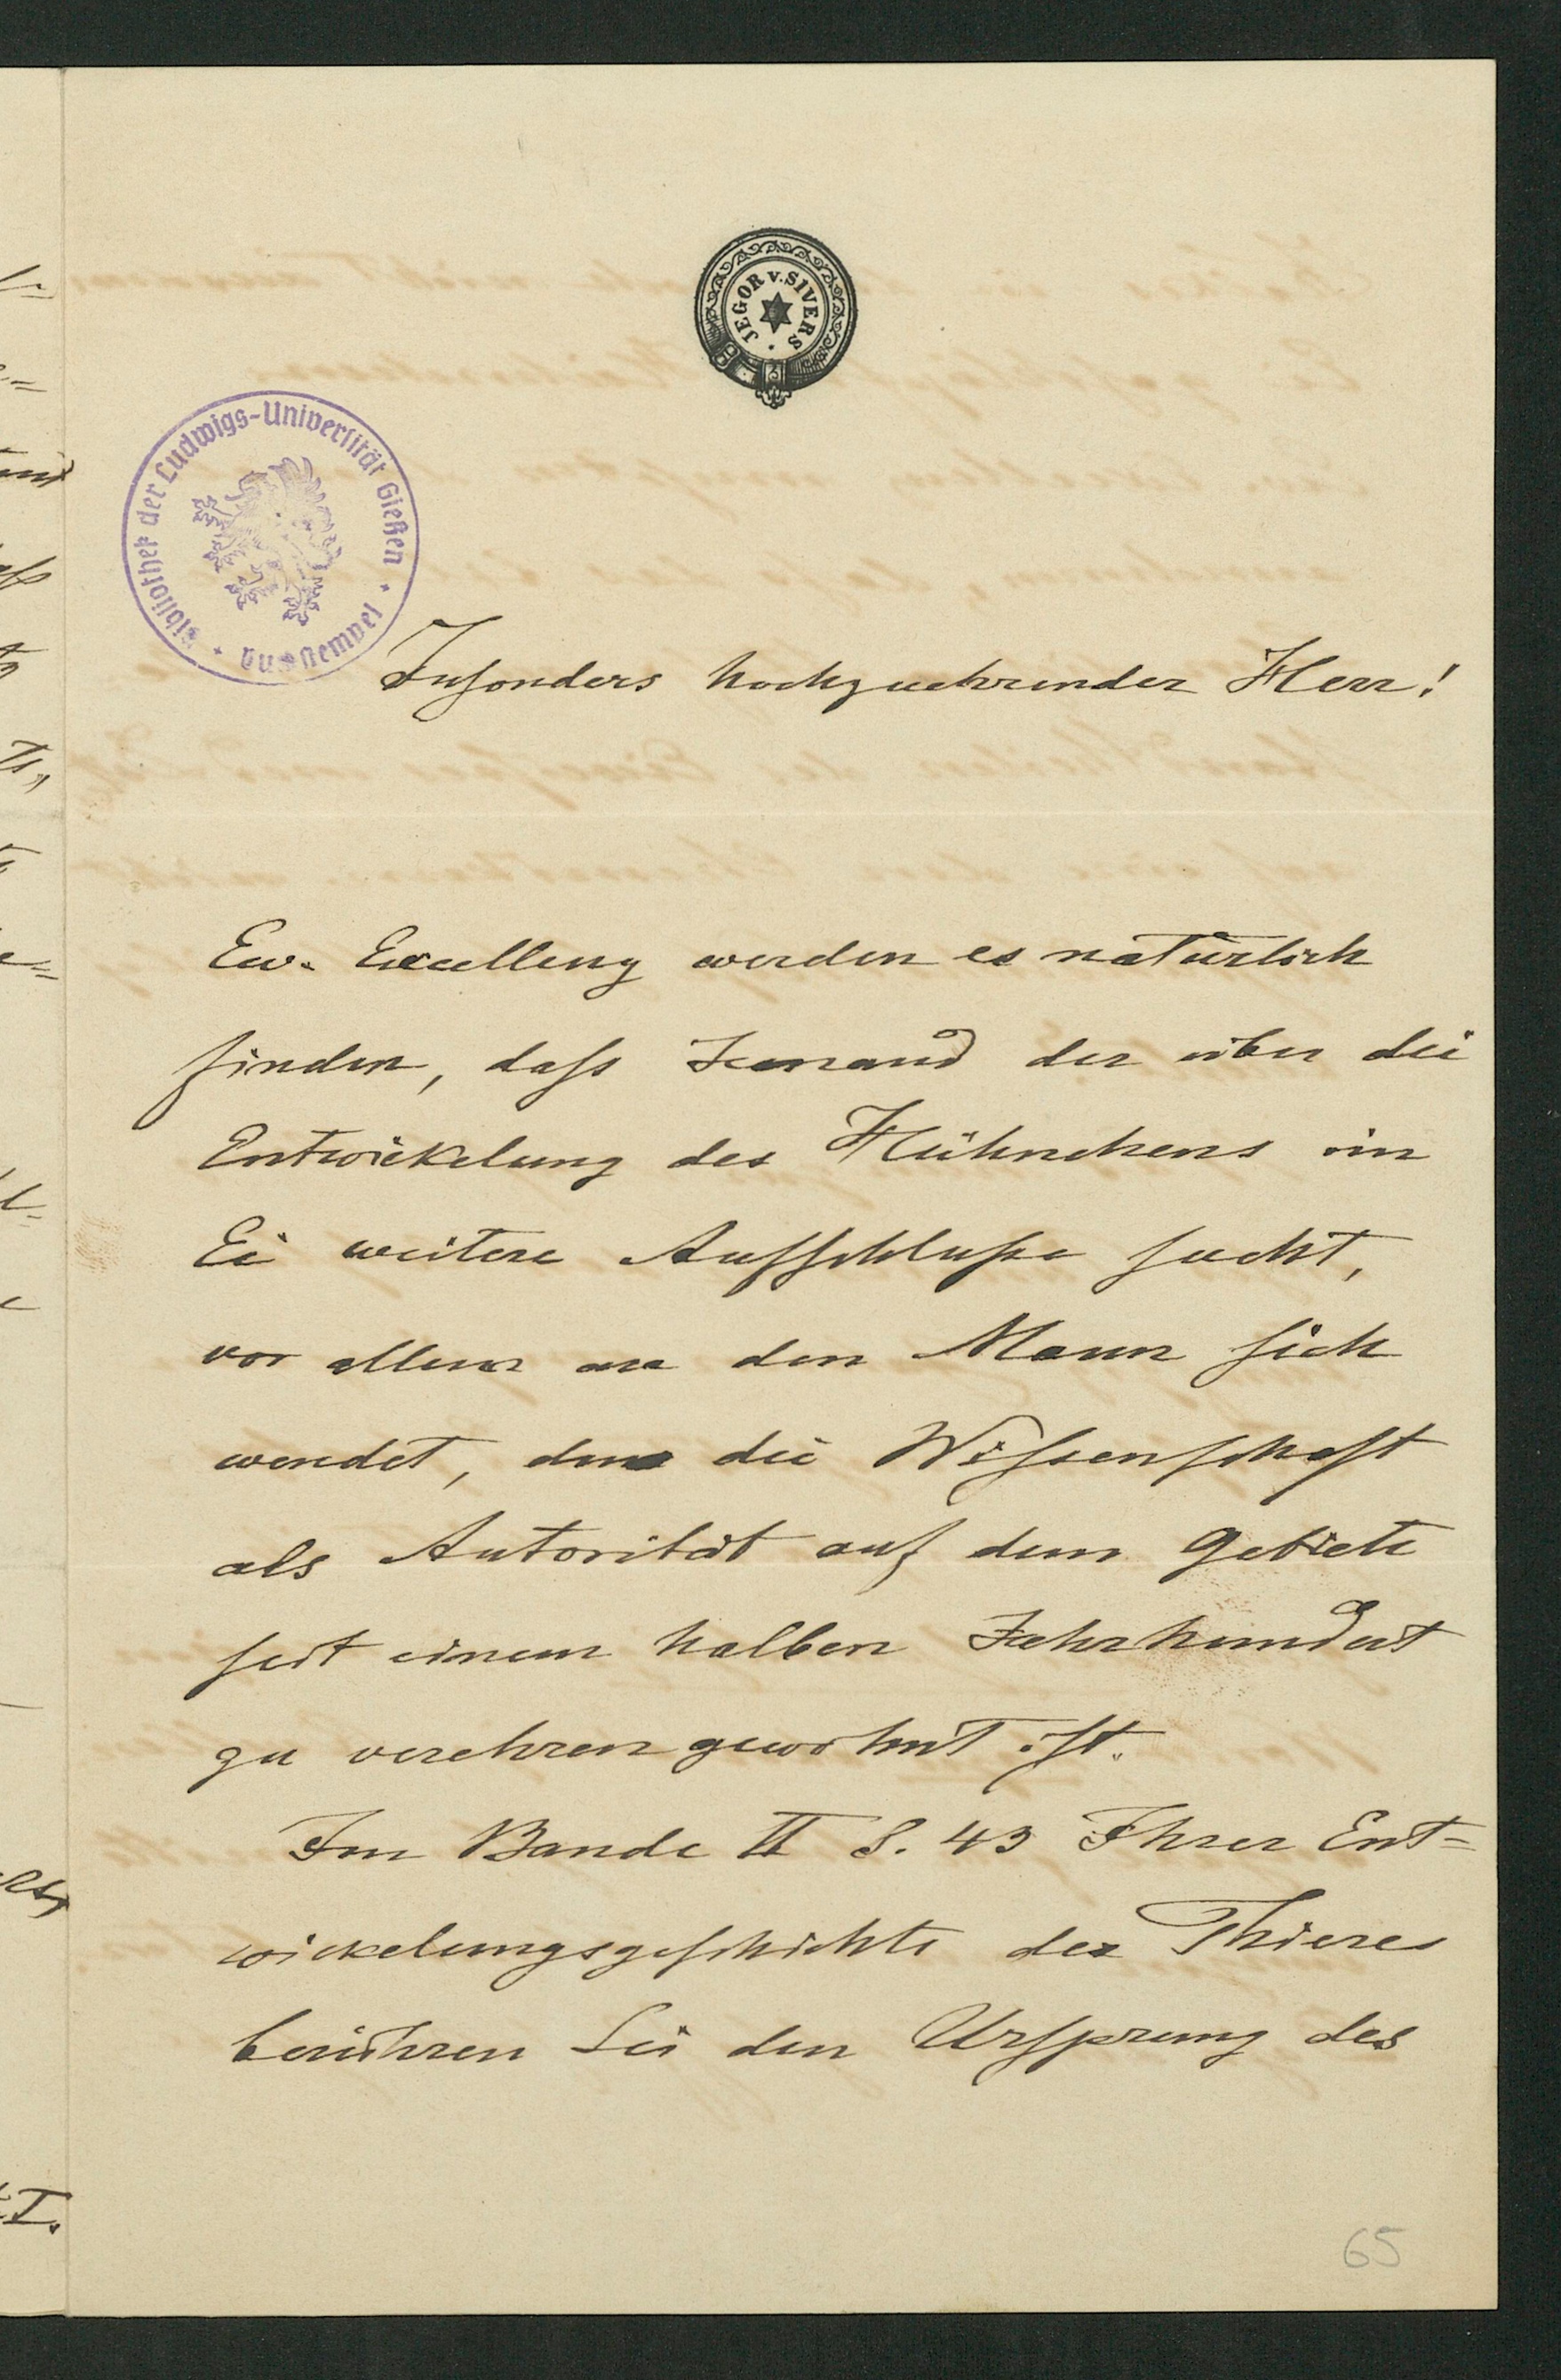 JEGOR v. SIVERS
Bibliothek der Ludwigs-Universität Gießen
Insonders hochzuehrender Herr!
Ew. Excellenz werden es natürlich
finden, dass Jemand der über die
Entwickelung des Hühnchens im
Ei weitere Aufschlusse sucht,
vor allem an den Mann sich
wendet, den die Wissenschaft
als Autorität auf dem Gebiete
seit einem halben Jahrhundert
zu verehren gewohnt ist.
Im Bande II S. 43 Ihrer Ent=
wickelungsgeschichte der Thiere
berühren Sie den Ursprung des
65